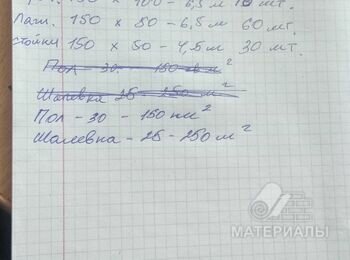 150 х 100 - 6,5 м 10 шт.
Лаги. 150 х 50 - 6,5 м 60 шт.
стойки 150 х 50 - 4,5 м 30 шт.
Пол - 30 - 150 м²
Шалевка 25 - 250 м²
Пол - 30 - 150 м²
Шалевка - 25 - 250 м²
МАТЕРИАЛЫ